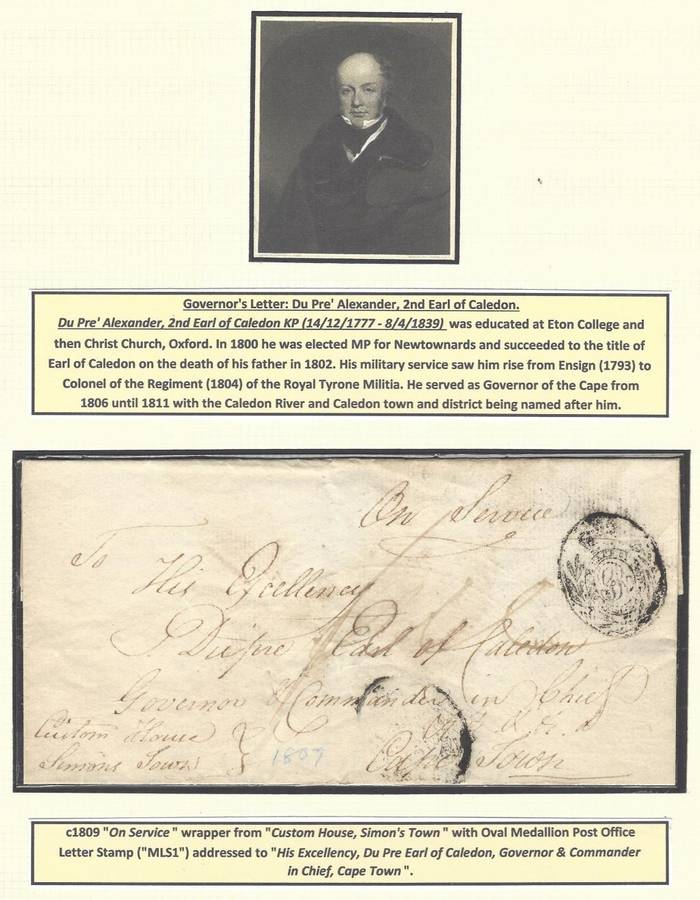 Governor's Letter: Du Pre' Alexander, 2nd Earl of Caledon.
Du Pre' Alexander, 2nd Earl of Caledon KP (14/12/1777 - 8/4/1839) was educated at Eton College and
then Christ Church, Oxford. In 1800 he was elected MP for Newtownards and succeeded to the title of
Earl of Caledon on the death of his father in 1802. His military service saw him rise from Ensign (1793) to
Colonel of the Regiment (1804) of the Royal Tyrone Militia. He served as Governor of the Cape from
1806 until 1811 with the Caledon River and Caledon town and district being named after him.
On Service
To
His Excellency
Dupre Earl of Caledon
Governor & Commander in Chief
Custom House
Simons Town
1809
Cape Town
c1809 "On Service" wrapper from "Custom House, Simon's Town" with Oval Medallion Post Office
Letter Stamp ("MLS1") addressed to "His Excellency, Du Pre Earl of Caledon, Governor & Commander
in Chief, Cape Town".